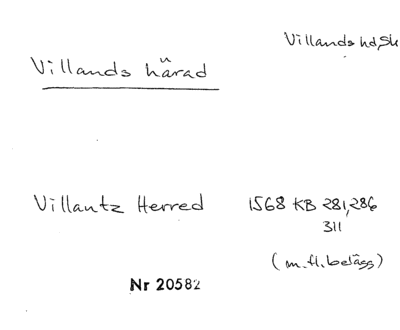 Villands hd, Sk
Villands härad
Villantz Herred 1568 KB 281, 286
311
(m.fl. belägg)
Nr 20582